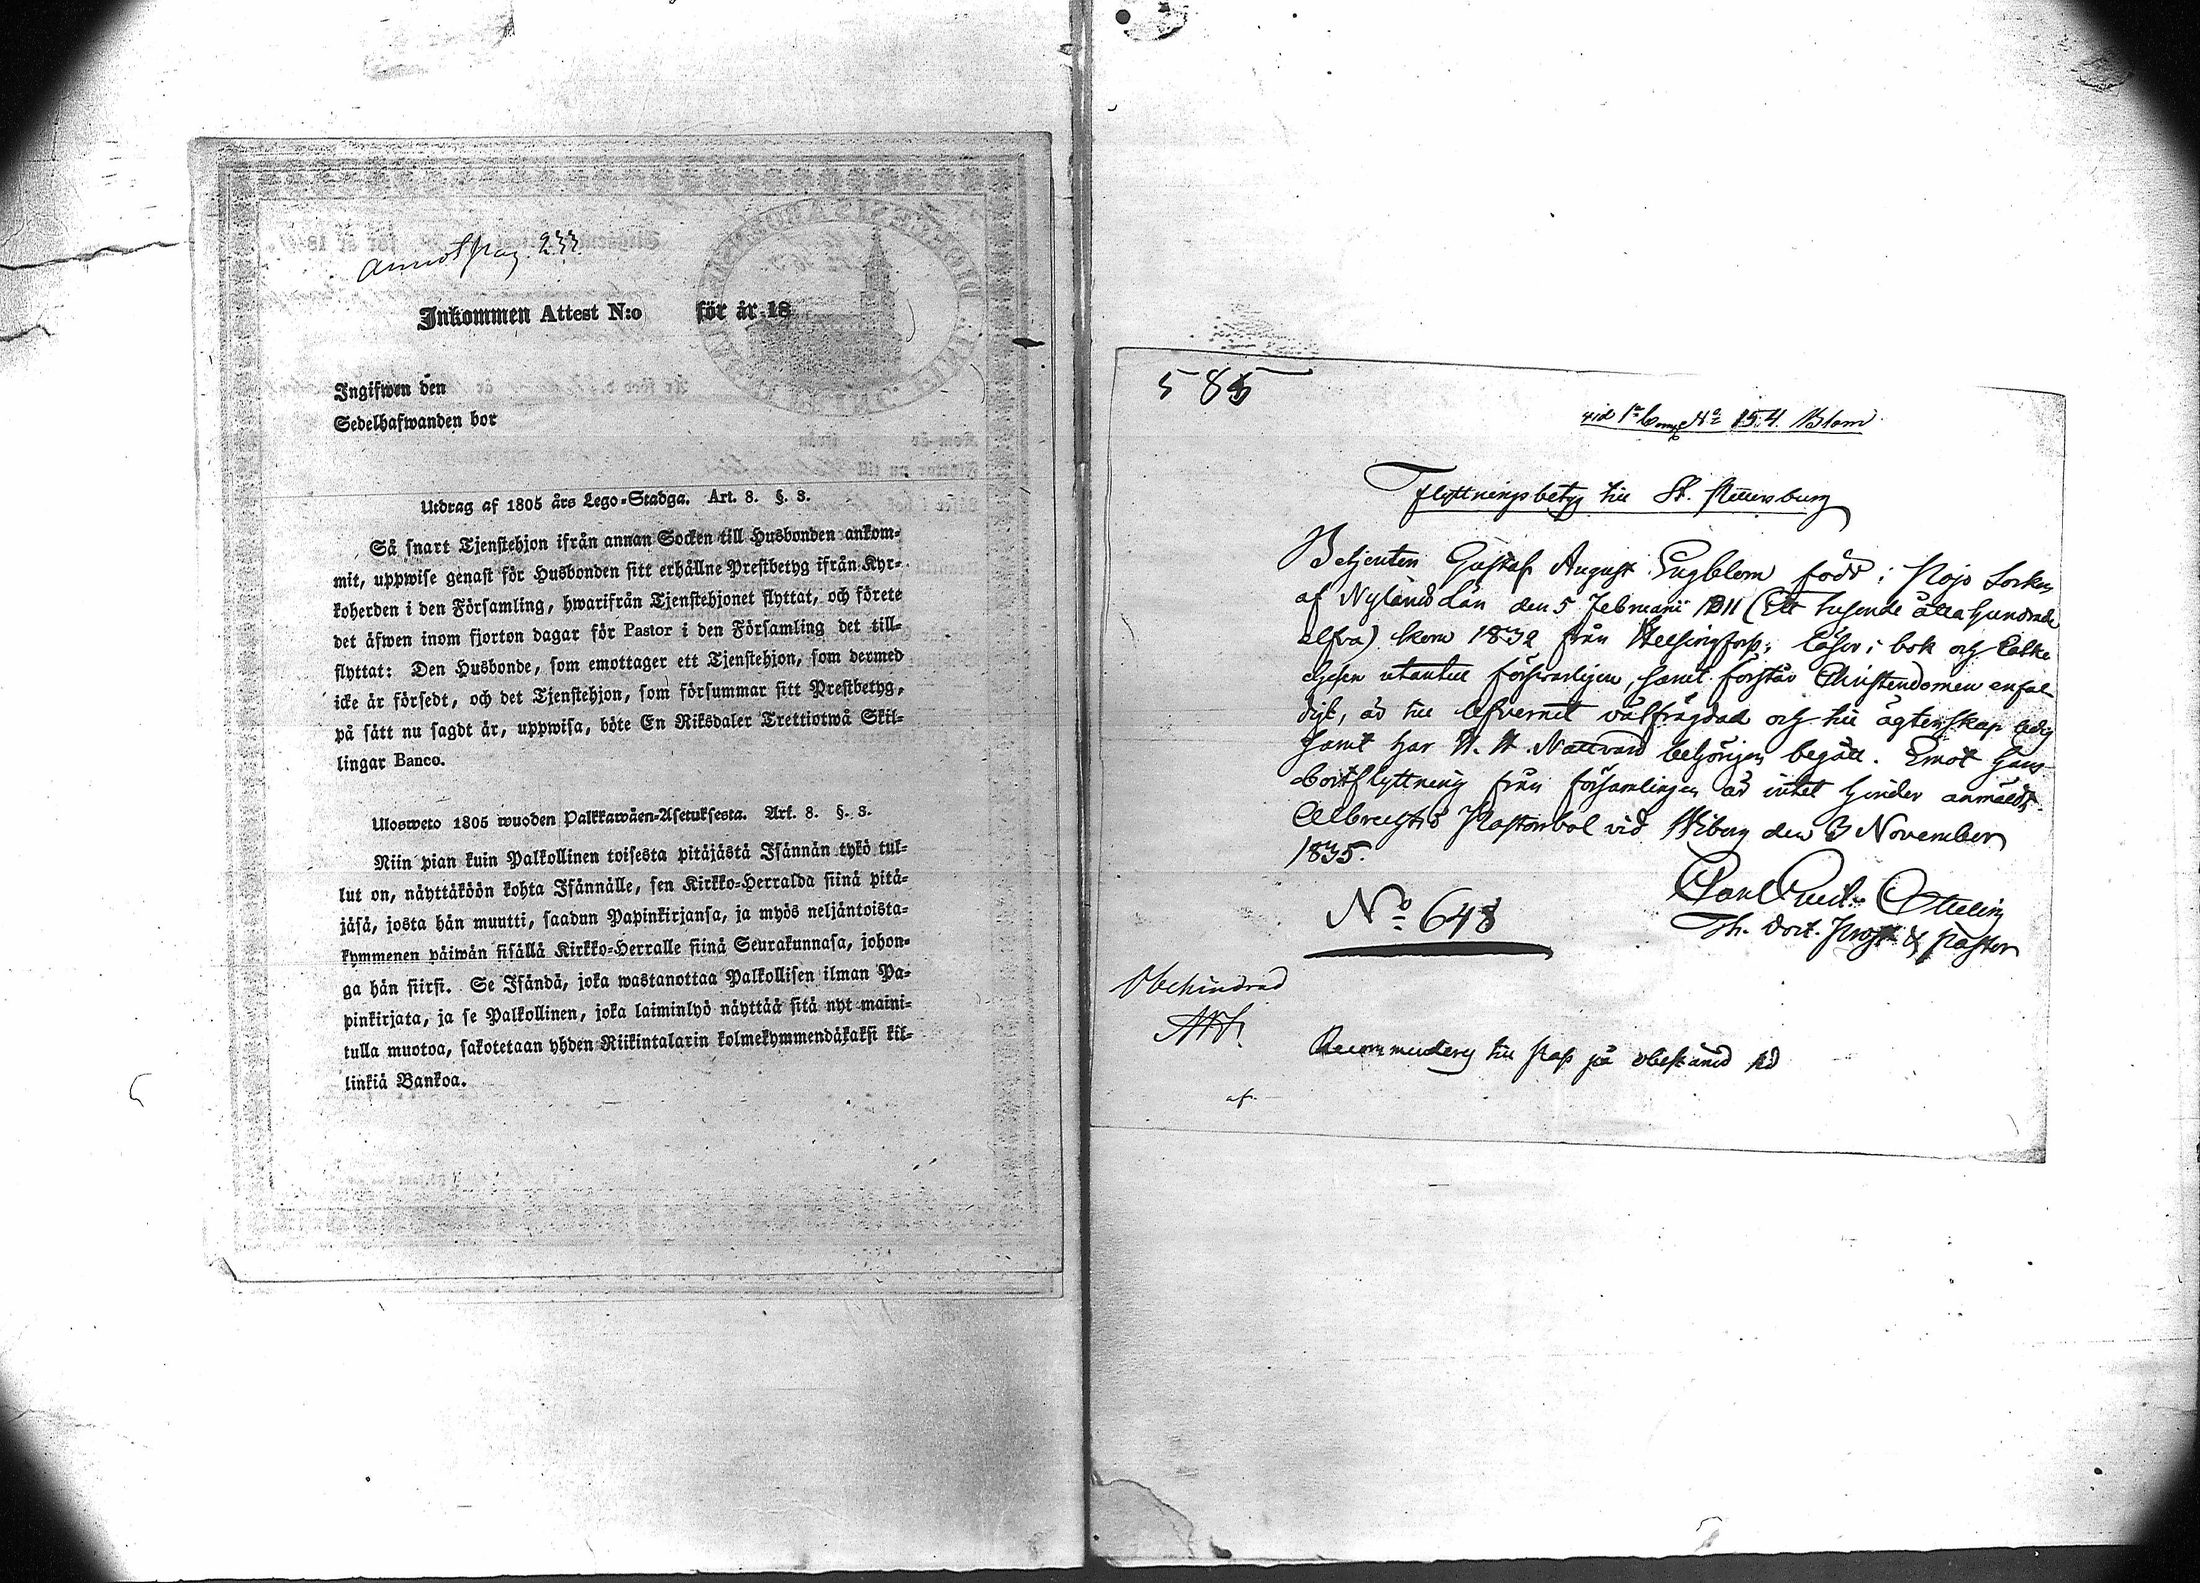 Annot pag. 233
Inkommen Attest N:o för år 18
Ingifwen den
Sedelhafwanden bor
Utdrag af 1805 års Lego-Stadga. Art. 8. §. 3.
Så snart Tjenstehjon ifrån annan Socken till Husbonden ankom-
mit, uppwise genast för Husbonden sitt erhållne Prestbetyg ifrån Kyr-
koherden i den Församling, hwarifrån Tjenstehjonet flyttat, och förete
det äfwen inom fjorton dagar för Pastor i den Församling det till-
flyttat: Den Husbonde, som emottager ett Tjenstehjon, som dermed
icke är försedt, och det Tjenstehjon, som försummar sitt Prestbetyg,
på sätt nu sagdt är, uppwisa, böte En Riksdaler Trettiotwå Skil-
lingar Banco.
Ulosweto 1805 wuoden Palkkawäen-Asetuksesta. Art. 8. §. 3.
Niin pian kuin Palkollinen toisesta pitäjästä Isännän tykö tul-
lut on, näyttäköön kohta Isännälle, sen Kirkko-Herralda siinä pitä-
jäsä, josta hän muutti, saadun Papinkirjansa, ja myös neljäntoista-
kymmenen päiwän sisällä Kirkko-Herralle siinä Seurakunnasa, johon-
ga hän siirsi. Se Isändä, joka wastanottaa Palkollisen ilman Pa-
pinkirjata, ja se Palkollinen, joka laiminlyö näyttää sitä nyt maini-
tulla muotoa, sakotetaan yhden Riikintalarin kolmekymmendäkaksi kil-
linkiä Bankoa.
585
vid No 154. Blom
Flyttningsbetyg till St. Petersburg
Betjenten Gustaf August Engblom född i Pojo Socken
af Nylands Län den 5 Februarii 1811 (Ett tusende åtta hundrade
elfva) kom 1832 från Helsingfors; läser i bok och Catke
chesen utantill försvarligen, samt förstår Christendomen enfal
digt, är till lefvernet välfrägdad och till ägtenskap ledig
samt har H. H. Nattvard behörigen begått. Emot hans
bortflyttning från församlingen är intet hinder anmäldt.
Albrechts Pastorsbol vid Wiborg den 3 November
1835.
Ottelin
Th. Doct. Prost & Pastor
No 648
Obehindrad
Recommenderes till Pass på obestämd tid
af.